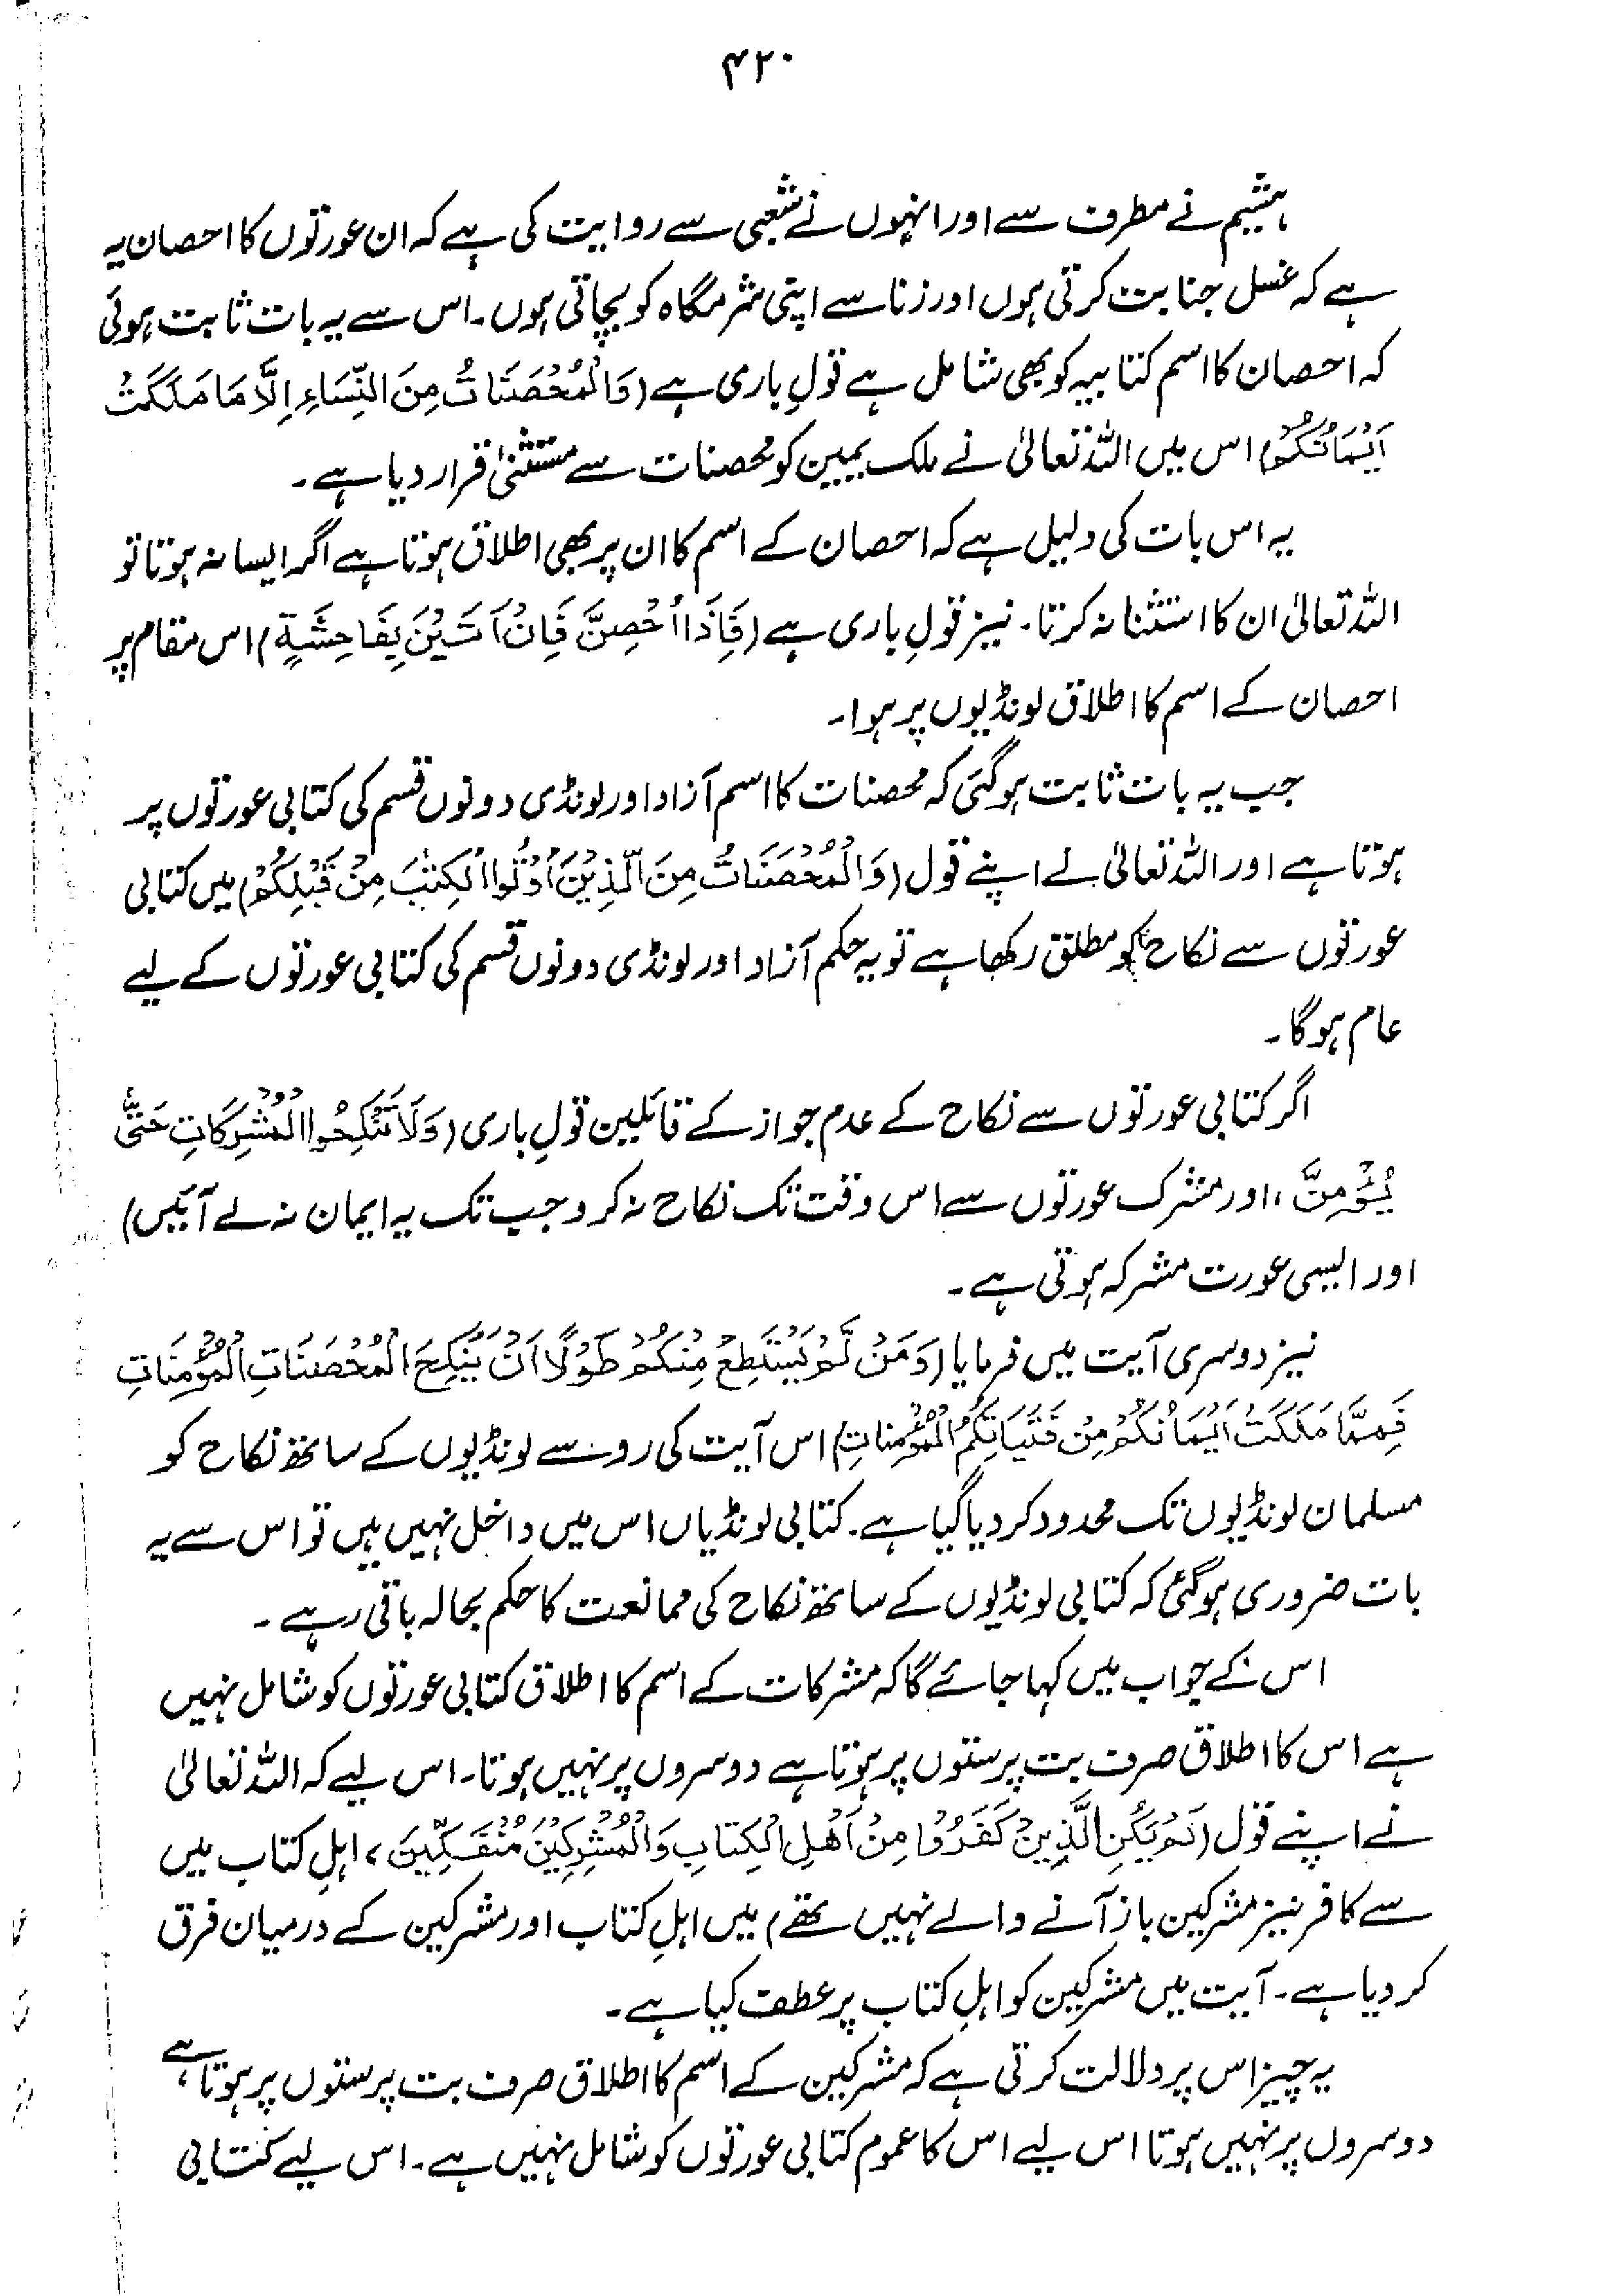 ۴۲۰
ہشیم نے مطرف سے اور انہوں نے شعبی سے روایت کی ہے کہ ان عورتوں کا احصان یہ
ہے کہ غسل جنابت کرتی ہوں اور زنا سے اپنی شرمگاہ کو بچاتی ہوں۔ اس سے یہ بات ثابت ہوئی
کہ احصان کا اسم کتابیہ کو بھی شامل ہے قولِ باری ہے (وَالْمُحْصَنَاتُ مِنَ النِّسَاءِ اِلَّا مَا مَلَكَتْ
اَيْمَانُكُمْ) اس میں اللہ تعالیٰ نے ملک یمین کو محصنات سے مستثنیٰ قرار دیا ہے۔
یہ اس بات کی دلیل ہے کہ احصان کے اسم کا ان پر بھی اطلاق ہوتا ہے اگر ایسا نہ ہوتا تو
اللہ تعالیٰ ان کا استثنا نہ کرتا۔ نیز قولِ باری ہے (فَاِذَا اُحْصِنَّ فَاِنْ اَتَيْنَ بِفَاحِشَةٍ) اس مقام پر
احصان کے اسم کا اطلاق لونڈیوں پر ہوا۔
جب یہ بات ثابت ہو گئی کہ محصنات کا اسم آزاد اور لونڈی دونوں قسم کی کتابی عورتوں پر
ہوتا ہے اور اللہ تعالیٰ نے اپنے قول (وَالْمُحْصَنَاتُ مِنَ الَّذِيْنَ اُوْتُوا الْكِتٰبَ مِنْ قَبْلِكُمْ) میں کتابی
عورتوں سے نکاح کو مطلق رکھا ہے تو یہ حکم آزاد اور لونڈی دونوں قسم کی کتابی عورتوں کے لیے
عام ہو گا۔
اگر کتابی عورتوں سے نکاح کے عدم جواز کے قائلین قولِ باری (وَلَا تَنْكِحُوا الْمُشْرِكَاتِ حَتّٰى
يُؤْمِنَّ، اور مشرک عورتوں سے اس وقت تک نکاح نہ کرو جب تک یہ ایمان نہ لے آئیں)
اور ایسی عورت مشرکہ ہوتی ہے۔
نیز دوسری آیت میں فرمایا (وَمَنْ لَّمْ يَسْتَطِعْ مِنْكُمْ طَوْلًا اَنْ يَّنْكِحَ الْمُحْصَنَاتِ الْمُؤْمِنَاتِ
فَمِمَّا مَلَكَتْ اَيْمَانُكُمْ مِنْ فَتَيَاتِكُمُ الْمُؤْمِنَاتِ) اس آیت کی رو سے لونڈیوں کے ساتھ نکاح کو
مسلمان لونڈیوں تک محدود کر دیا گیا ہے۔ کتابی لونڈیاں اس میں داخل نہیں ہیں تو اس سے یہ
بات ضروری ہو گئی کہ کتابی لونڈیوں کے ساتھ نکاح کی ممانعت کا حکم بحالہ باقی رہے۔
اس کے جواب میں کہا جائے گا کہ مشرکات کے اسم کا اطلاق کتابی عورتوں کو شامل نہیں
ہے اس کا اطلاق صرف بت پرستوں پر ہوتا ہے دوسروں پر نہیں ہوتا۔ اس لیے کہ اللہ تعالیٰ
نے اپنے قول (لَمْ يَكُنِ الَّذِيْنَ كَفَرُوْا مِنْ اَهْلِ الْكِتَابِ وَالْمُشْرِكِيْنَ مُنْفَكِّيْنَ، اہلِ کتاب میں
سے کافر نیز مشرکین باز آنے والے نہیں تھے) میں اہلِ کتاب اور مشرکین کے درمیان فرق
کر دیا ہے۔ آیت میں مشرکین کو اہلِ کتاب پر عطف کیا ہے۔
یہ چیز اس پر دلالت کرتی ہے کہ مشرکین کے اسم کا اطلاق صرف بت پرستوں پر ہوتا ہے،
دوسروں پر نہیں ہوتا اس لیے اس کا عموم کتابی عورتوں کو شامل نہیں ہے۔ اس لیے کتابی